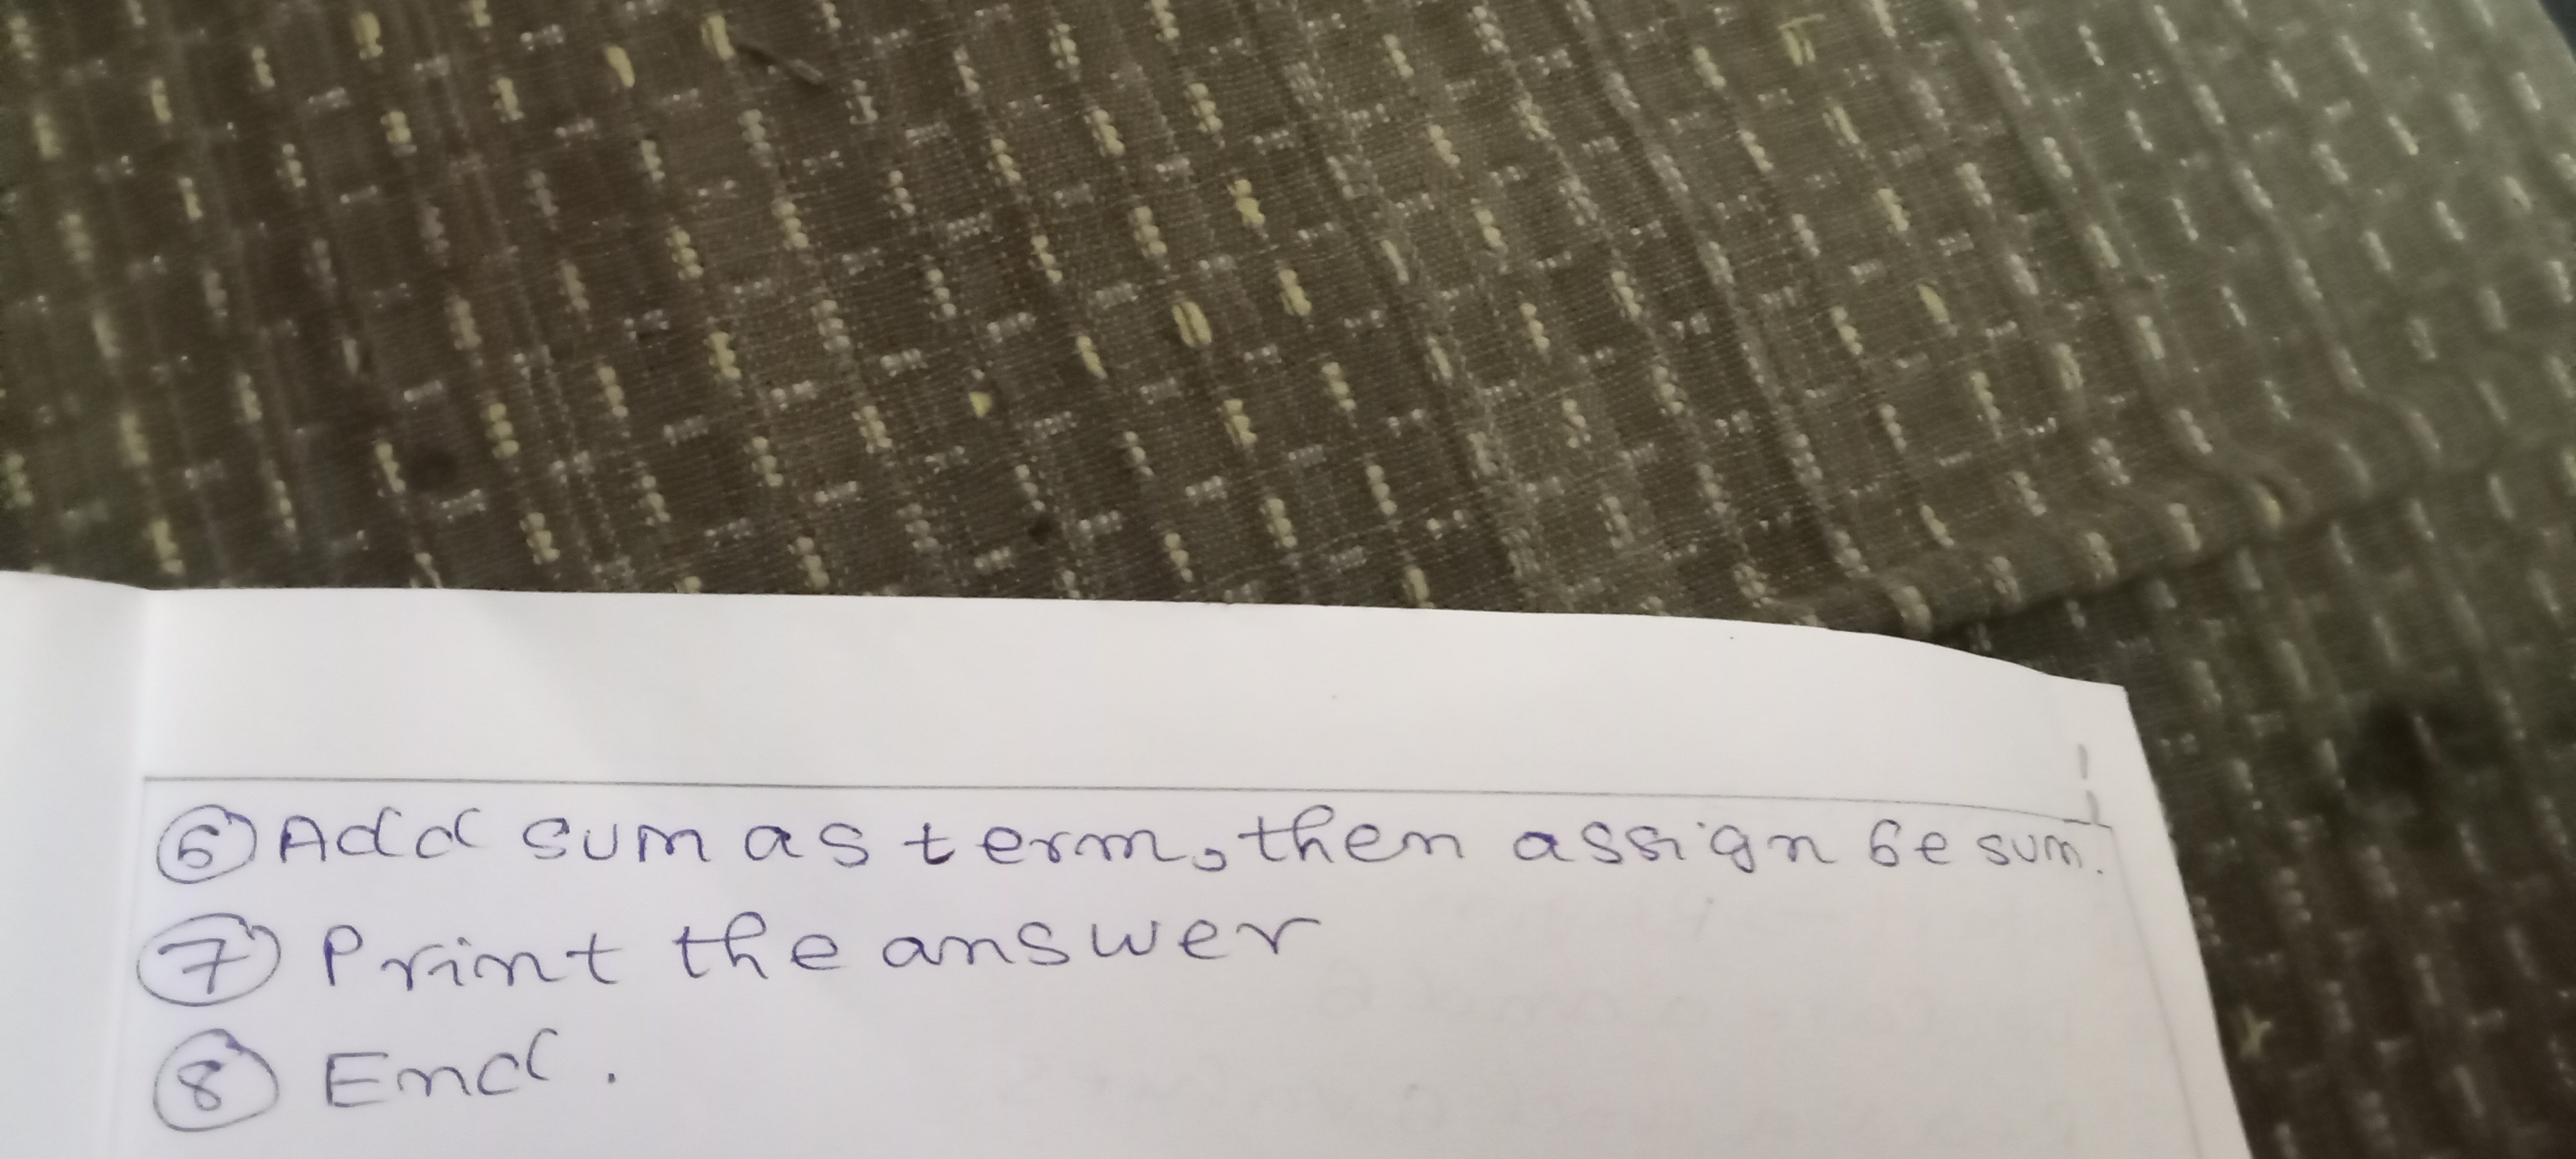 6 Add sum as term, then assign be sum.
7 Print the answer
8 End.